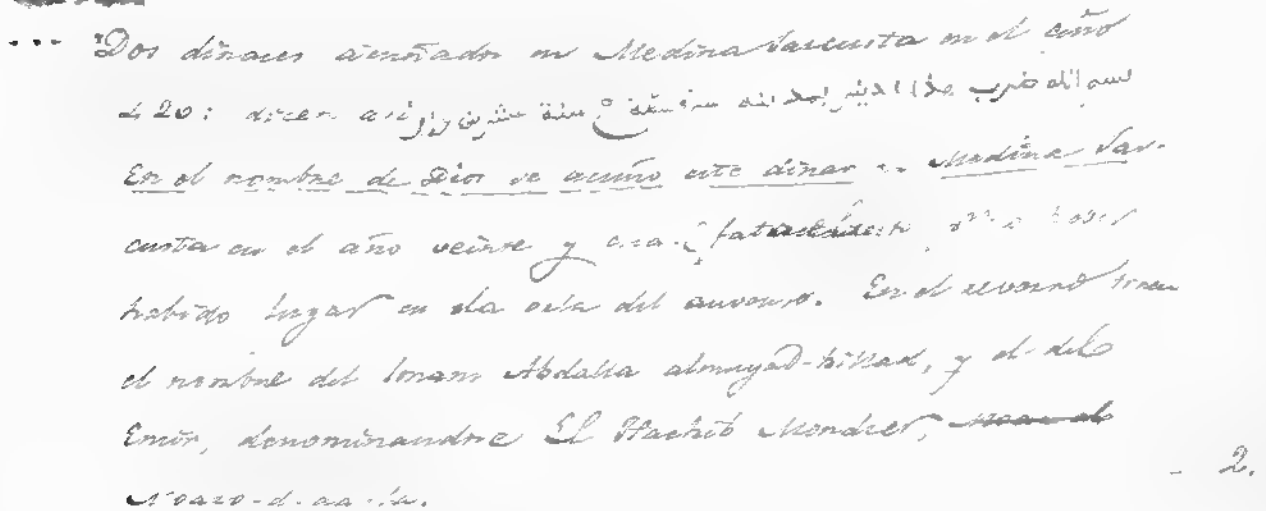 Dos dinares acuñados en Medina Sarcusta en el año
420: dicen así بسم الله ضرب هذا الدينر بمدينة سرقسطة سنة عشرين وار
En el nombre de Dios se acuño este dinar en Medina Sar-
custa en el año veinte y cua- (faltan no haber
habido lugar en la orla del anverso. En el reverso tienen
el nombre del Imam Abdalla almuyad-billad, y el del
Emir, denominandose El Hachib Mondzer,
2.